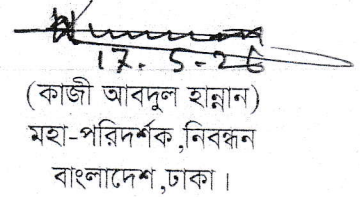 17-5-26
(কাজী আবদুল হান্নান)
মহা-পরিদর্শক,নিবন্ধন
বাংলাদেশ,ঢাকা।